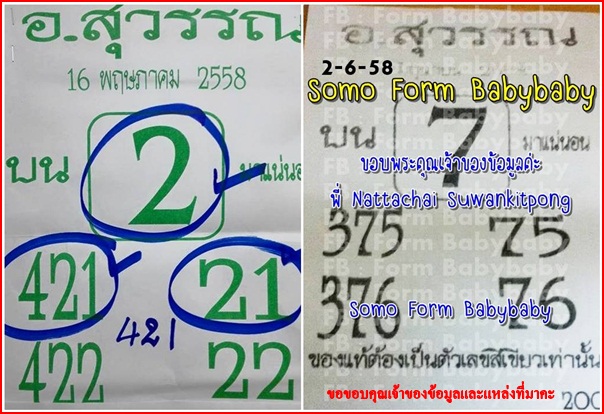 อ.สุวรรณ
16 พฤษภาคม 2558
บน 2 มาแน่นอน
421 21
421
422 22
FB : Form Babybaby
อ.สุวรรณ
2-6-58
Somo Form Babybaby
บน 7 มาแน่นอน
ขอบพระคุณเจ้าของข้อมูลค่ะ
พี่ Nattachai Suwankitpong
375 75
376 76
Somo Form Babybaby
ของแท้ต้องเป็นตัวเลขสีเขียวเท่านั้น
ขอขอบคุณเจ้าของข้อมูลและแหล่งที่มาคะ
200